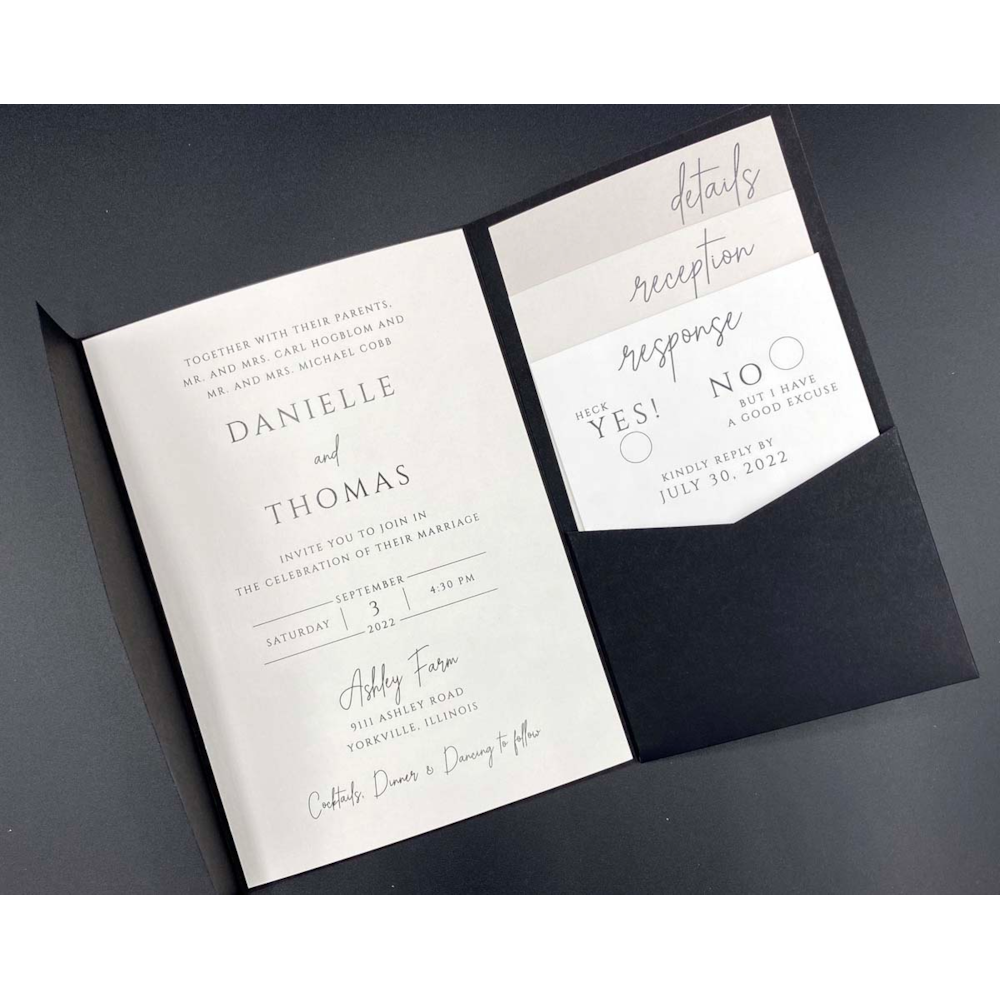 TOGETHER WITH THEIR PARENTS,
MR. AND MRS. CARL HOGBLOM AND
MR. AND MRS. MICHAEL COBB
DANIELLE
and
THOMAS
INVITE YOU TO JOIN IN
THE CELEBRATION OF THEIR MARRIAGE
SEPTEMBER
SATURDAY 3 4:30 PM
2022
Ashley Farm
9111 ASHLEY ROAD
YORKVILLE, ILLINOIS
Cocktails, Dinner & Dancing to follow
details
reception
response
HECK
YES!
NO
BUT I HAVE
A GOOD EXCUSE
KINDLY REPLY BY
JULY 30, 2022